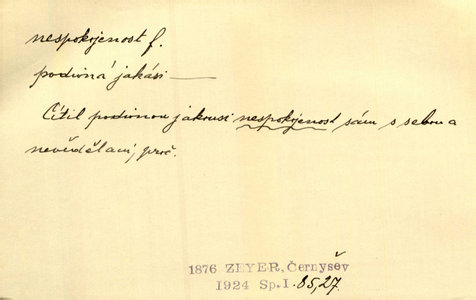 nespokojenost f.
podivná jakási —
Cítil podivnou jakousi nespokojenost sám s sebou a
nevěděl ani, proč.
1876 ZEYER, Černyšev
1924 Sp. I. 85,27